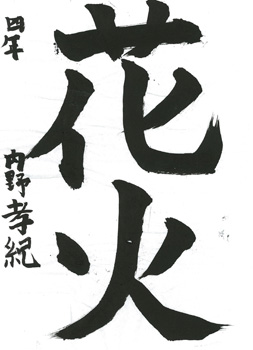 花火
四年 内野孝紀